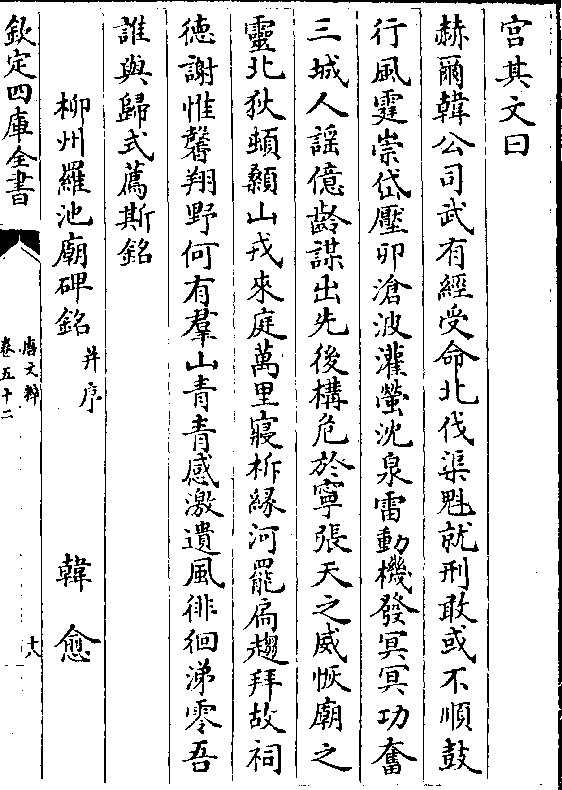 宫其文曰
赫爾韓公司武有經受命北伐渠魁就刑敢或不順鼓
行風霆崇岱壓卵滄波灌螢沈泉雷動機發冥冥功奮
三城人謡億齡謀出先後構危於寧張天之威恢廟之
靈北狄頓顙山戎來庭萬里寢柝緣河罷扃趨拜故祠
徳謝惟馨翔野何有羣山青青感激遺風徘徊涕零吾
誰與歸式薦斯銘
柳州羅池廟碑銘并序 韓愈
欽定四庫全書 唐文粹 卷五十二 十八